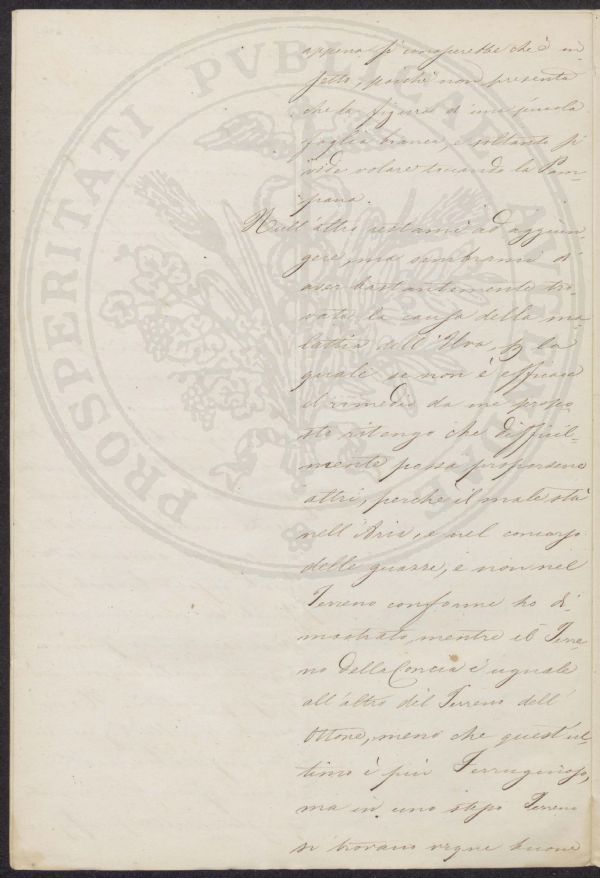 PROSPERITATI PUBLICAE AUGENDAE
appena si conoperebbe che è in-
setto, poichè non presenta
che la figura d'una piccola
foglia bianca, e soltanto si
vide volare toccando la Pam-
pana.
Null'altro restami ad aggiun-
gere, ma sembrami d'
aver bastantemente tro-
vata la causa della ma-
lattia dell'Uva, p la
quale se non è efficace
il rimedio da me propo-
sto ritengo che difficil-
mente possa propordene
altri, perchè il male sta
nell'Aria, e nel concorso
delle guazze, e non nel
Terreno conforme ho di-
mostrato, mentre il Terre-
no della Concia è uguale
all'altro del Terreno dell'
Ottone, meno che quest'ul-
timo è più Ferruginoso,
ma in uno stesso Terreno
si trovano vigne buone